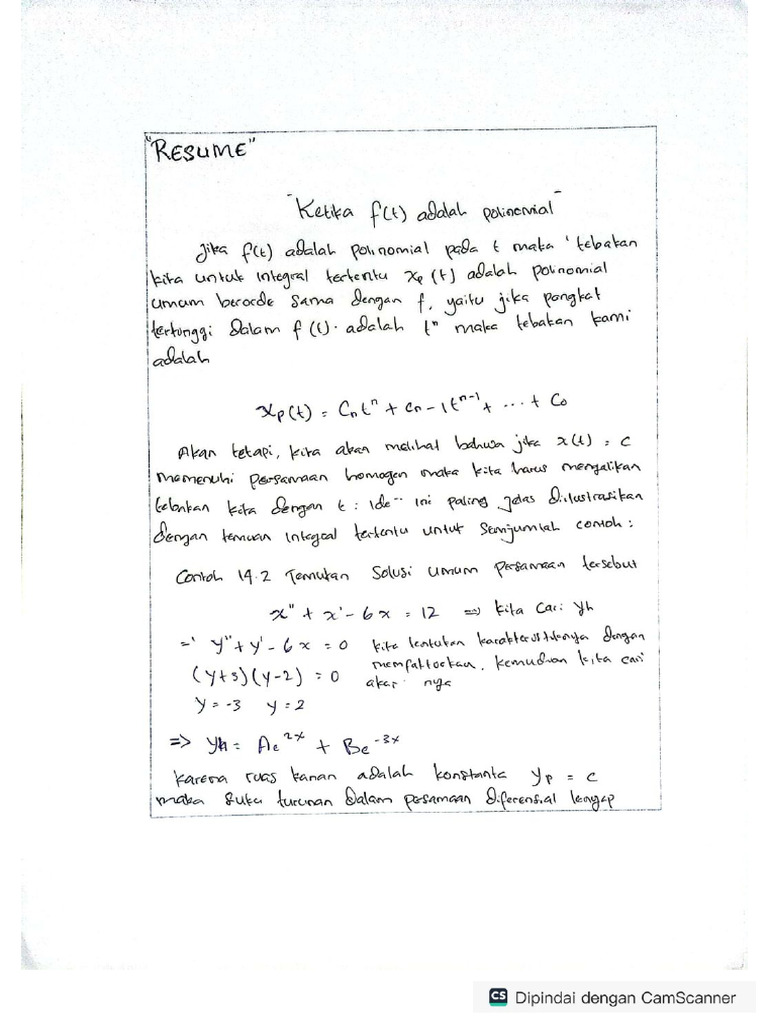 "RESUME"
"Ketika f(t) adalah polinomial"
Jika f(t) adalah polinomial pada t maka 'tebakan
kita untuk integral tertentu xₚ(t) adalah polinomial
umum berorde sama dengan f, yaitu jika pangkat
tertinggi dalam f(t). adalah tⁿ maka tebakan kami
adalah
xₚ(t) = Cₙtⁿ + cₙ-1tⁿ⁻¹ + ... + C₀
Akan tetapi, kita akan melihat bahwa jika x(t) = c
memenuhi persamaan homogen maka kita harus mengalikan
tebakan kita dengan t : Ide-- ini paling jelas diilustrasikan
dengan temuan integral tertentu untuk semjumlah contoh :
Contoh 14.2 Temukan Solusi umum persamaan tersebut
x" + x' - 6x = 12 => kita cari yh
=' y" + y' - 6x = 0 kita tentukan karakteristiknya dengan
(y+3)(y-2) = 0 memfaktorkan, kemudian kita cari
akar nya
y = -3 y = 2
=> yh = Ae²ˣ + Be⁻³ˣ
karena ruas kanan adalah konstanta yₚ = c
maka suku turunan dalam persamaan diferensial lengap
CS Dipindai dengan CamScanner